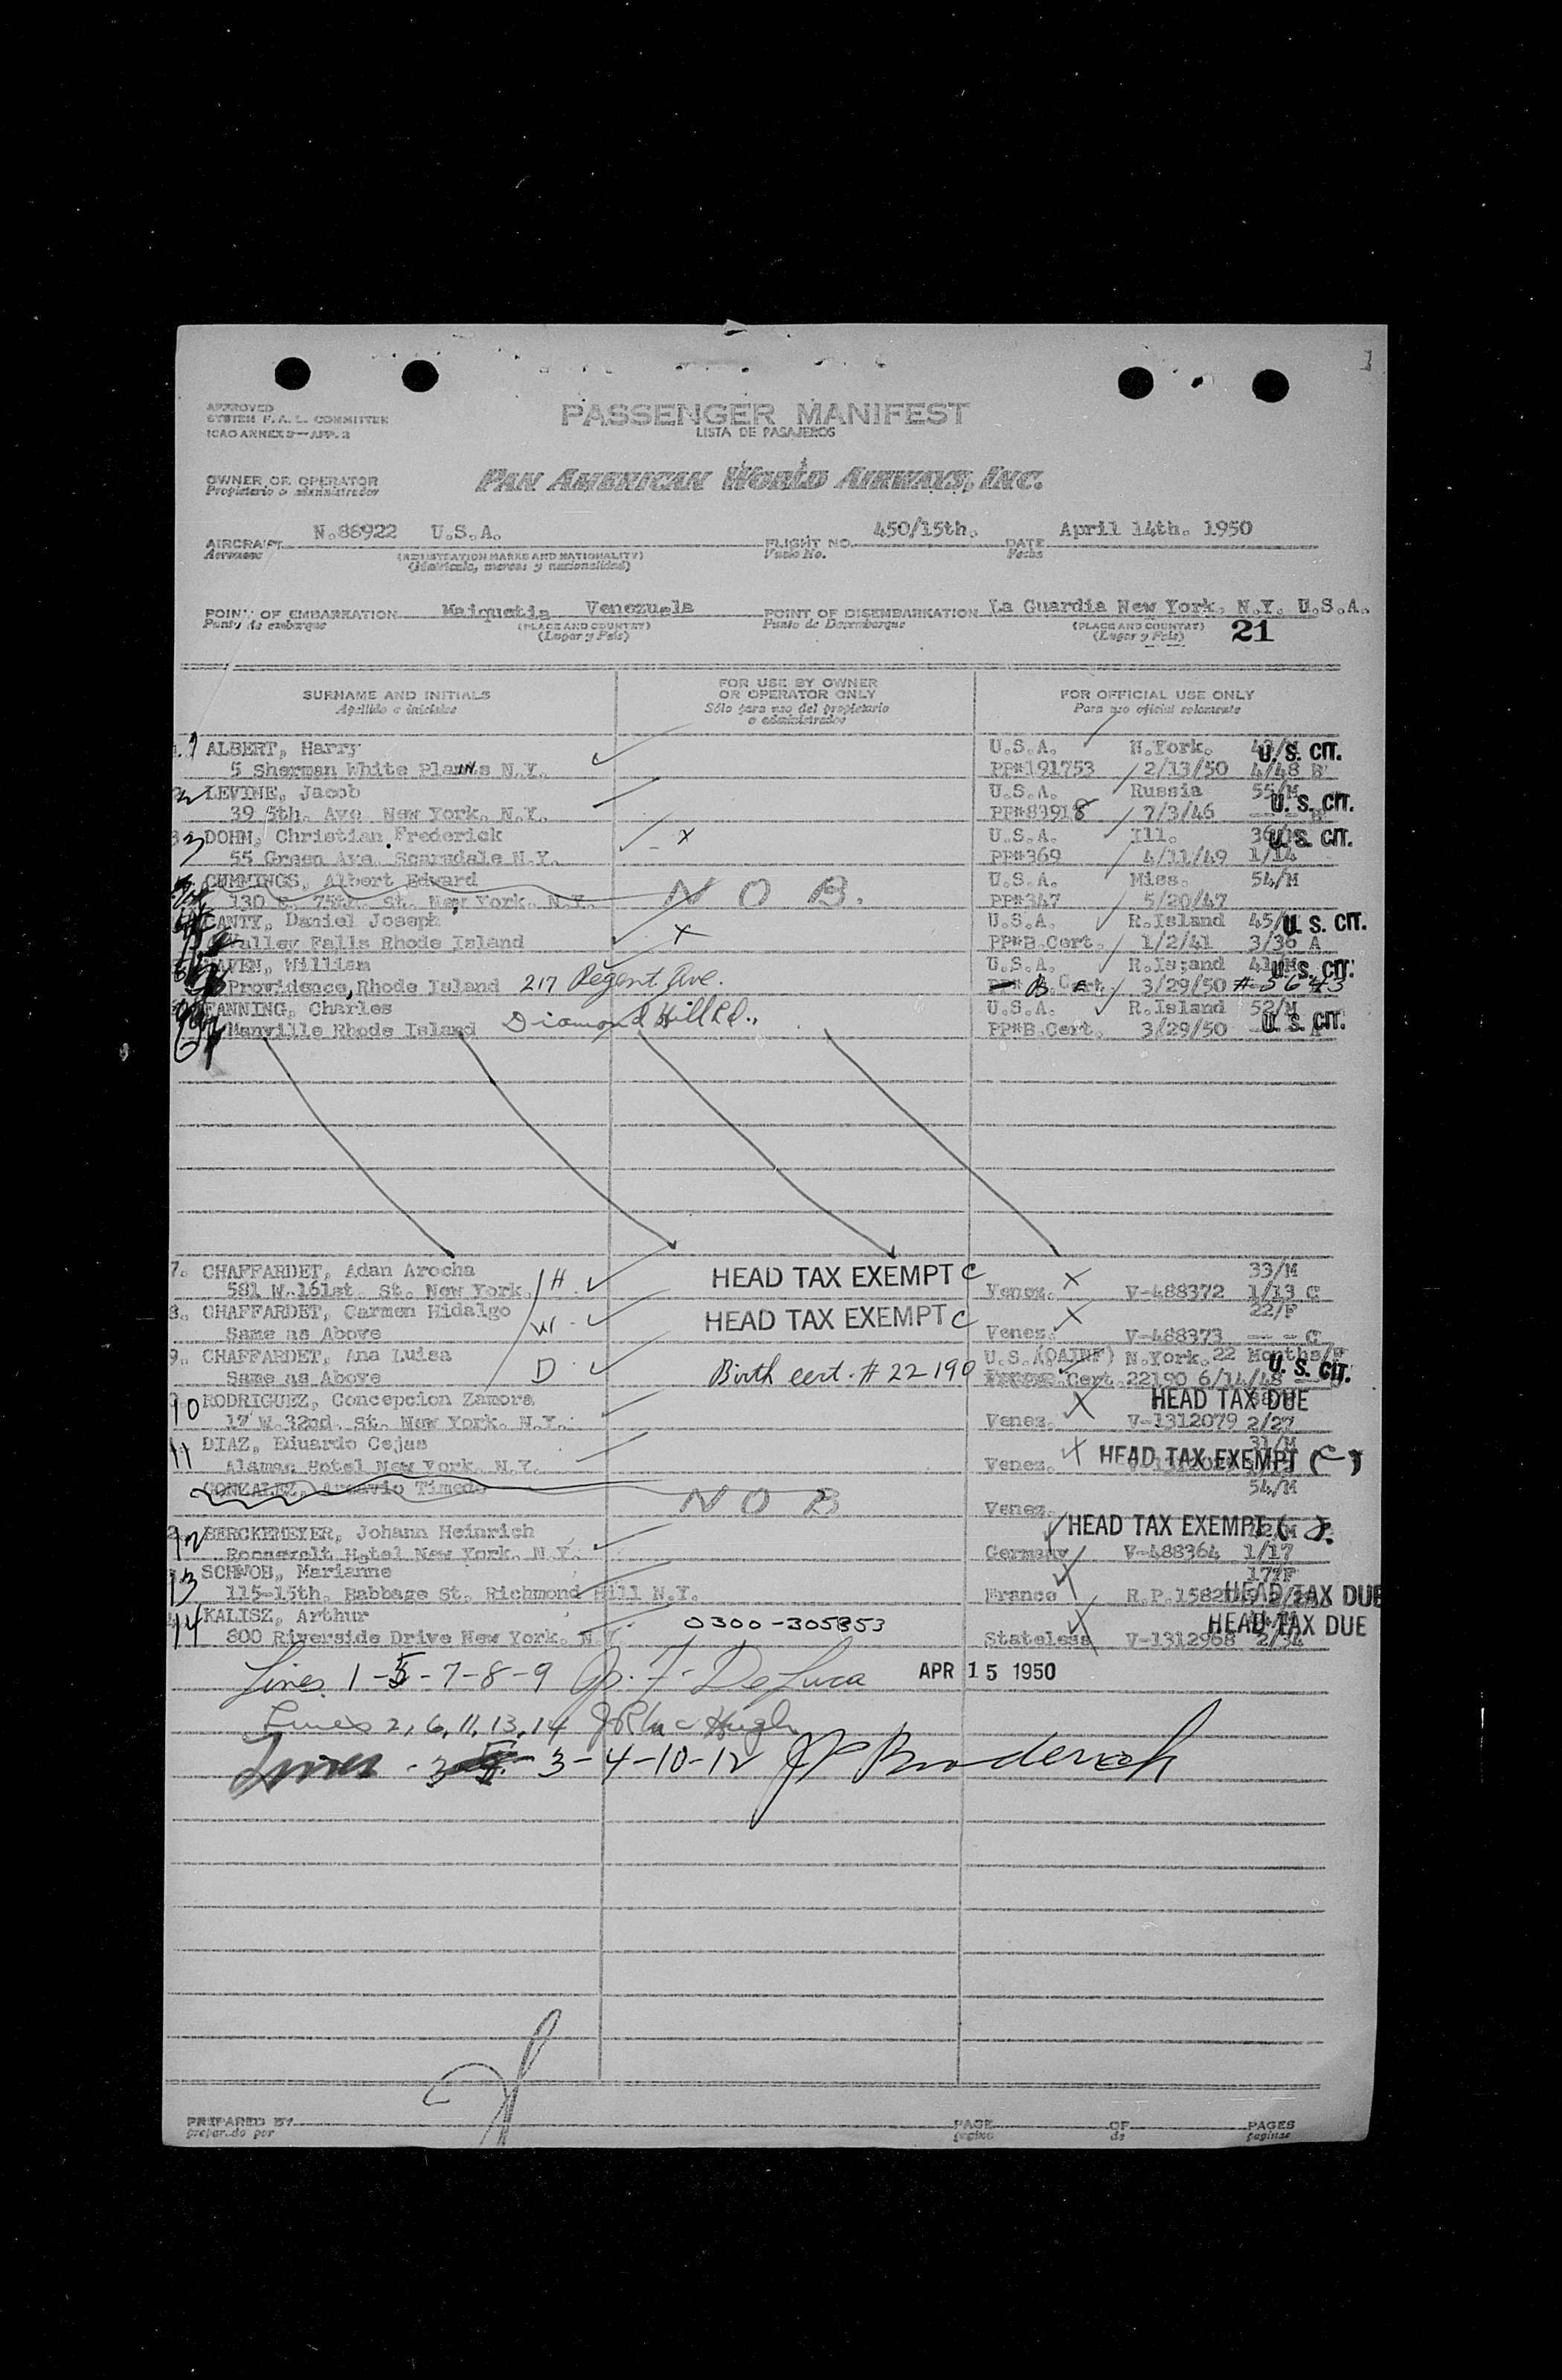 APPROVED
SYSTEM F. A. L. COMMITTEE
ICAO ANNEX 9—APP. 3
PASSENGER MANIFEST
LISTA DE PASAJEROS
OWNER OR OPERATOR
Propietario o administrador
PAN AMERICAN WORLD AIRWAYS, INC.
AIRCRAFT N.88922 U.S.A. FLIGHT NO. 450/15th. DATE April 14th. 1950
Aeronave (REGISTRATION MARKS AND NATIONALITY) Vuelo No. Fecha
(Matrícula, marcas y nacionalidad)
POINT OF EMBARKATION Maiquetia Venezuela POINT OF DISEMBARKATION La Guardia New York. N.Y. U.S.A.
Punto de embarque (PLACE AND COUNTRY) Punto de Desembarque (PLACE AND COUNTRY)
(Lugar y País) (Lugar y País) 21
SURNAME AND INITIALS FOR USE BY OWNER OR OPERATOR ONLY FOR OFFICIAL USE ONLY
Apellido e iniciales Sólo para uso del propietario o administrador Para uso oficial solamente
1 ALBERT, Harry U.S.A. N.York. U. S. CIT.
5 Sherman White Plains N.Y. PP#191753 2/13/50 4/48
2 LEVINE, Jacob U.S.A. Russia 55/M
39 5th. Ave New York. N.Y. PP#83918 7/3/46 U. S. CIT.
3 DOHM, Christian Frederick U.S.A. Ill. U. S. CIT.
55 Green Ave. Scarsdale N.Y. PP#369 4/11/49 1/14
CUMMINGS, Albert Edward N O B. U.S.A. Miss. 54/M
130 E. 75th. St. New York. N.Y. PP#347 5/20/47
CANTY, Daniel Joseph U.S.A. R.Island 45/ U. S. CIT.
Valley Falls Rhode Island PP#B.Cert. 1/2/41 3/36 A
William U.S.A. R.Is;and U. S. CIT.
Providence, Rhode Island 217 Regent Ave. B. Cert. 3/29/50 # 5643
Charles U.S.A. R.Island 52/M
Manville Rhode Island Diamond Hill Rd., PP#B.Cert. 3/29/50 U. S. CIT.
7. CHAFFARDET, Adan Arocha HEAD TAX EXEMPT C 33/M
581 W.161st. St. New York. H Venez. V-488372 1/13 C
8. CHAFFARDET, Carmen Hidalgo HEAD TAX EXEMPT C 22/F
Same as Above W Venez. V-488373 -- - C
9. CHAFFARDET, Ana Luisa U.S. N.York. 22 Months/F
Same as Above D Birth cert. # 22190 Cert. 22190 6/14/48 U. S. CIT.
10 RODRIGUEZ, Concepcion Zamora HEAD TAX DUE
17 W.32nd. St. New York. N.Y. Venez. V-1312079 2/27
11 DIAZ, Eduardo Cejas 31/M
Alamac Hotel New York. N.Y. Venez. HEAD TAX EXEMPT (C)
GONZALEZ, Timedo N O B 54/M
Venez.
12 BERCKEMEYER, Johann Heinrich HEAD TAX EXEMPT
Roosevelt Hotel New York. N.Y. Germany V-488364 1/17
13 SCHWOB, Marianne 17/F
115-15th. Babbage St. Richmond Hill N.Y. France R.P. HEAD TAX DUE
14 KALISZ, Arthur 0300-305853 HEAD TAX DUE
800 Riverside Drive New York. N.Y. Stateless V-1312968 2/34
Lines 1-5-7-8-9 F. DeLuca APR 15 1950
Lines 2, 6, 11, 13, 14
Lines 3-4-10-12 Broderick
PREPARED BY PAGE OF PAGES
preparado por página de páginas